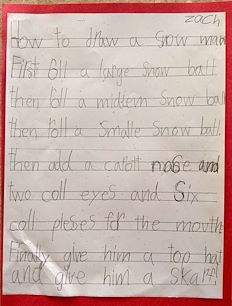 zach
How to draw a Snow man
First Roll a large Snow ball
then Roll a midtem Snow ball
then Roll a Smalle Snow ball.
then add a carott nose and
two coll eyes and Six
coll pleses for the mouth
Finally give him a top hat
and give him a Skarf.